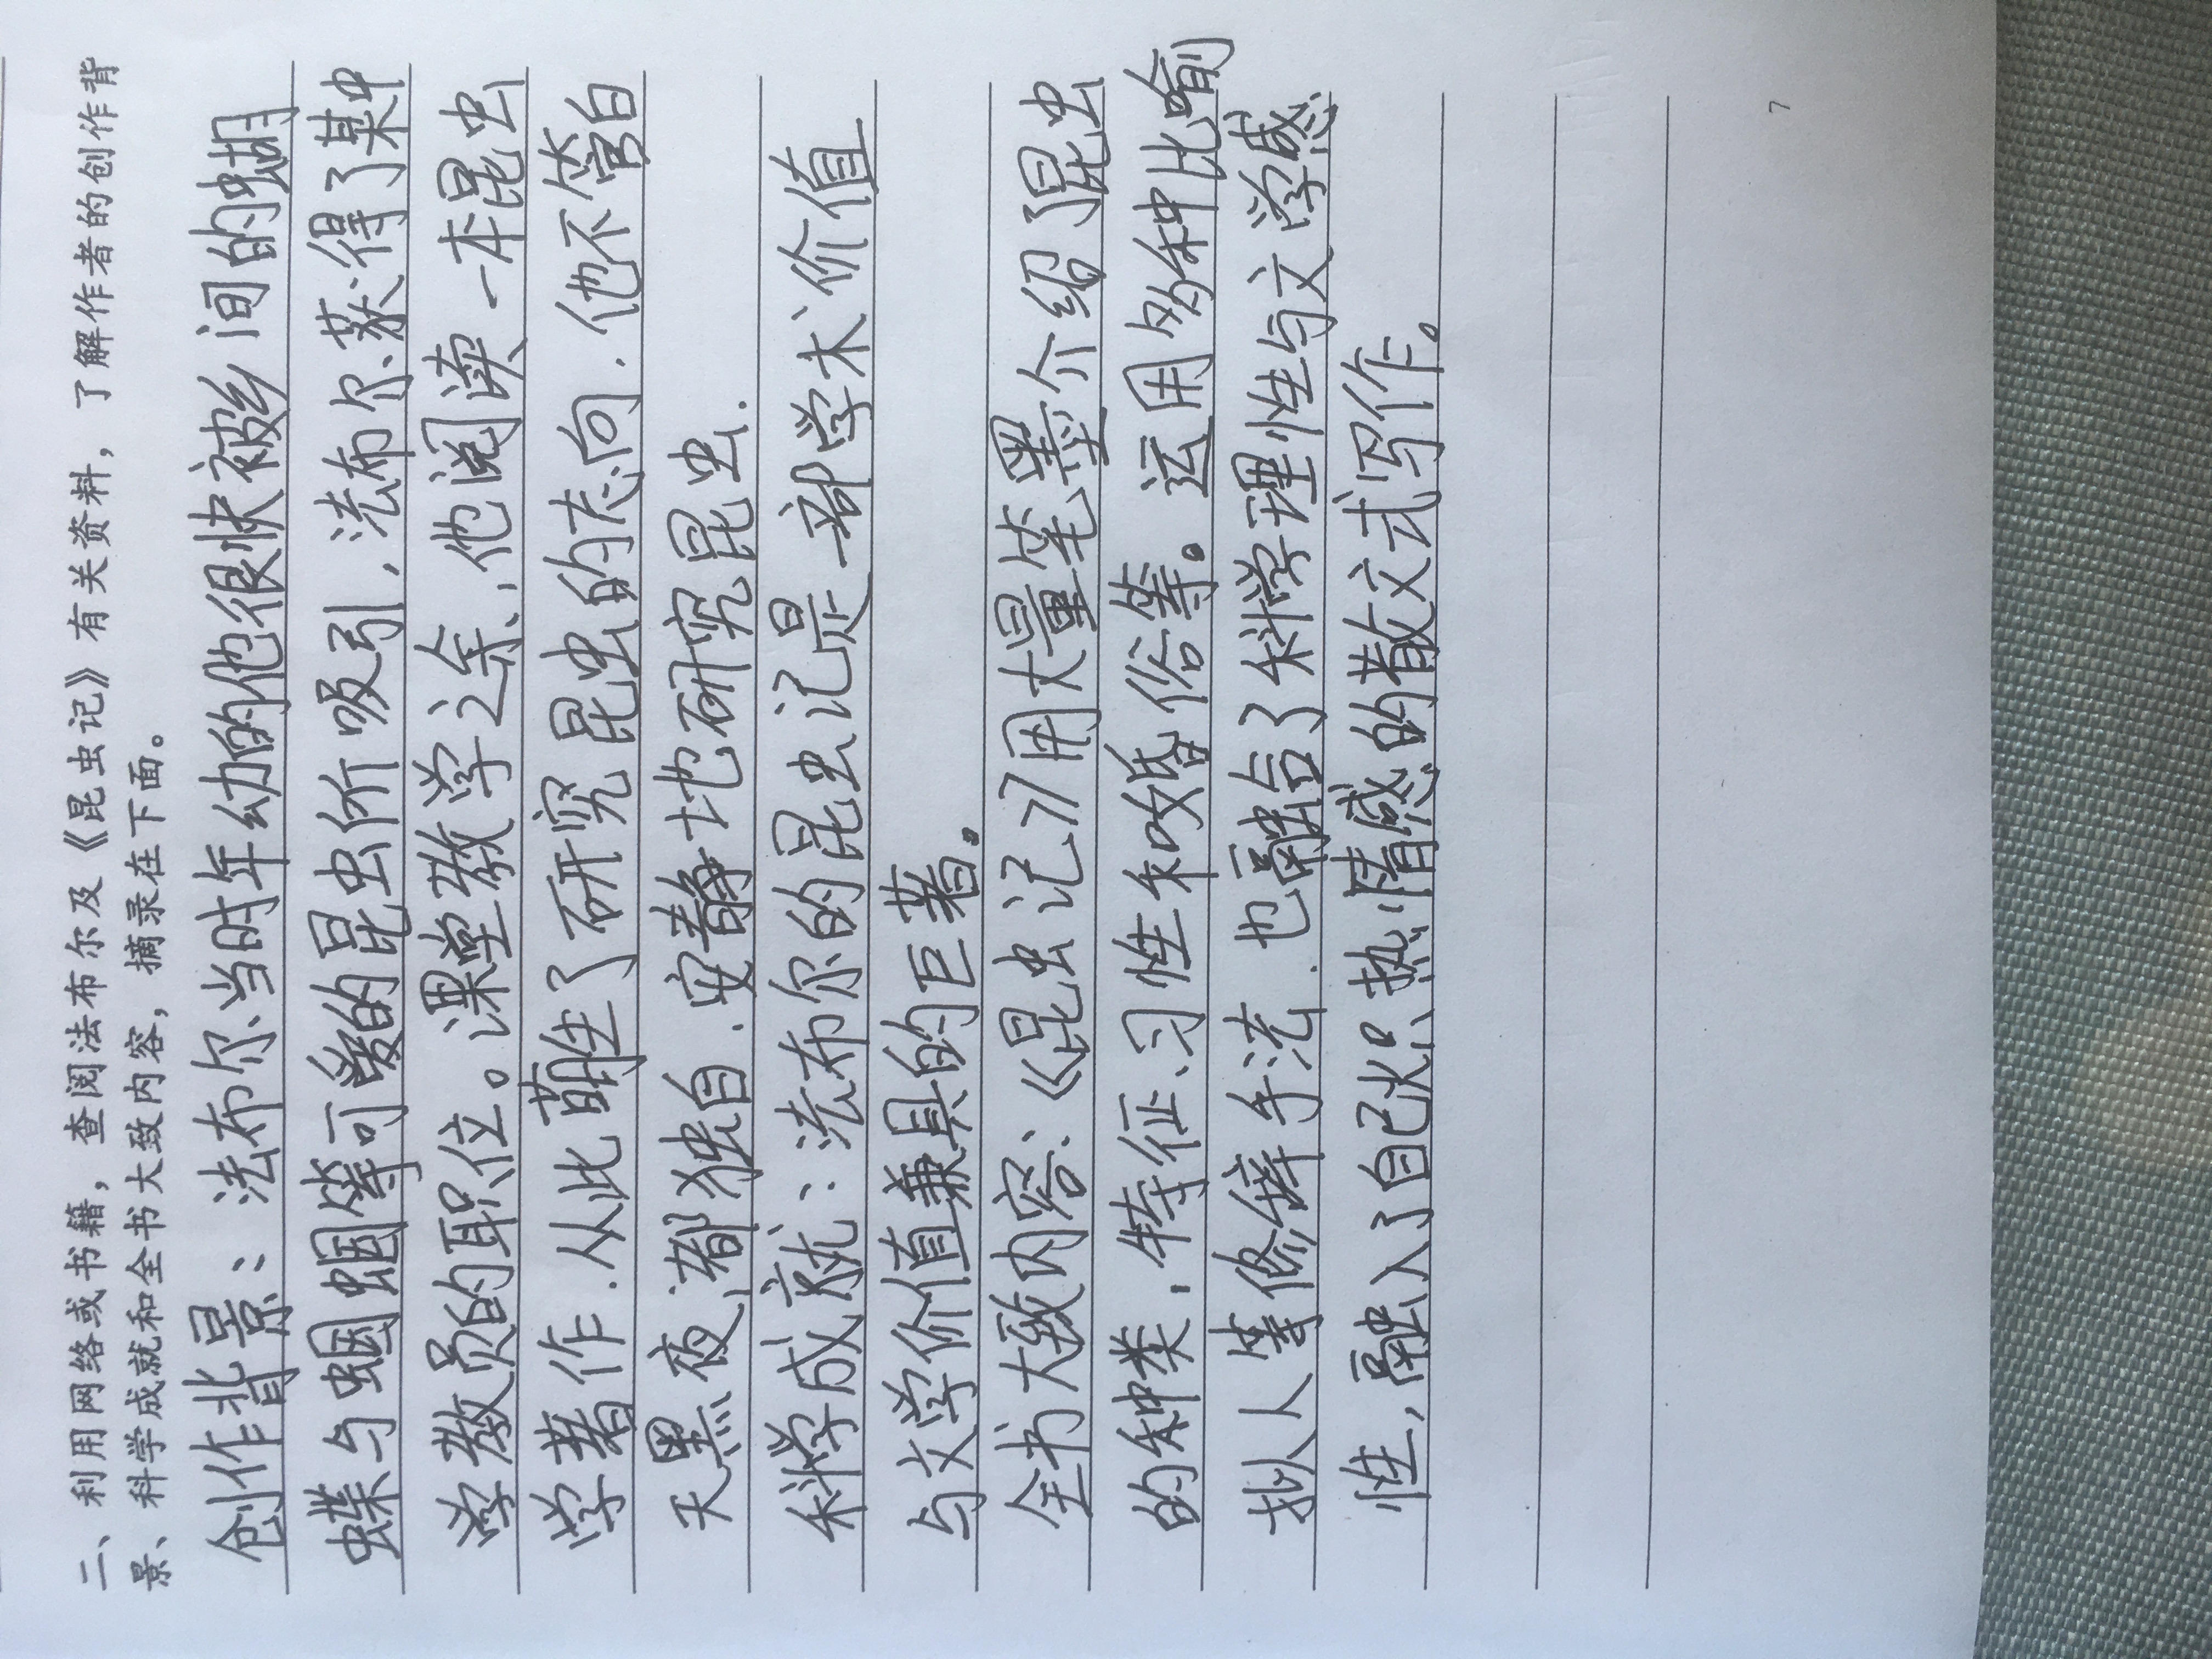 二、利用网络或书籍，查阅法布尔及《昆虫记》有关资料，了解作者的创作背
景、科学成就和全书大致内容，摘录在下面。
创作背景：法布尔当时年幼的他很快被乡间的蝴
蝶与蝈蝈等可爱的昆虫所吸引，法布尔获得了某中
学教员的职位。课堂教学之余，他阅读一本昆虫
学著作．从此萌生了研究昆虫的志向．他不管白
天黑夜，都独自．安静地研究昆虫．
科学成就：法布尔的昆虫记是一部学术价值
与文学价值兼具的巨著。
全书大致内容：《昆虫记》用大量笔墨介绍了昆虫
的种类，特征、习性和婚俗等。运用多种比喻
拟人等修辞手法．也融合了科学理性与文学感
性，融入了自己热情感的散文式写作。
7